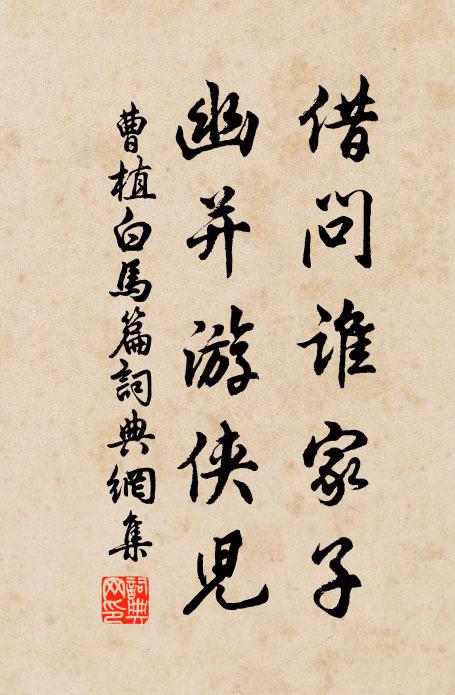 借問誰家子
幽并游俠兒
曹植白馬篇詞典網集
詞典网印